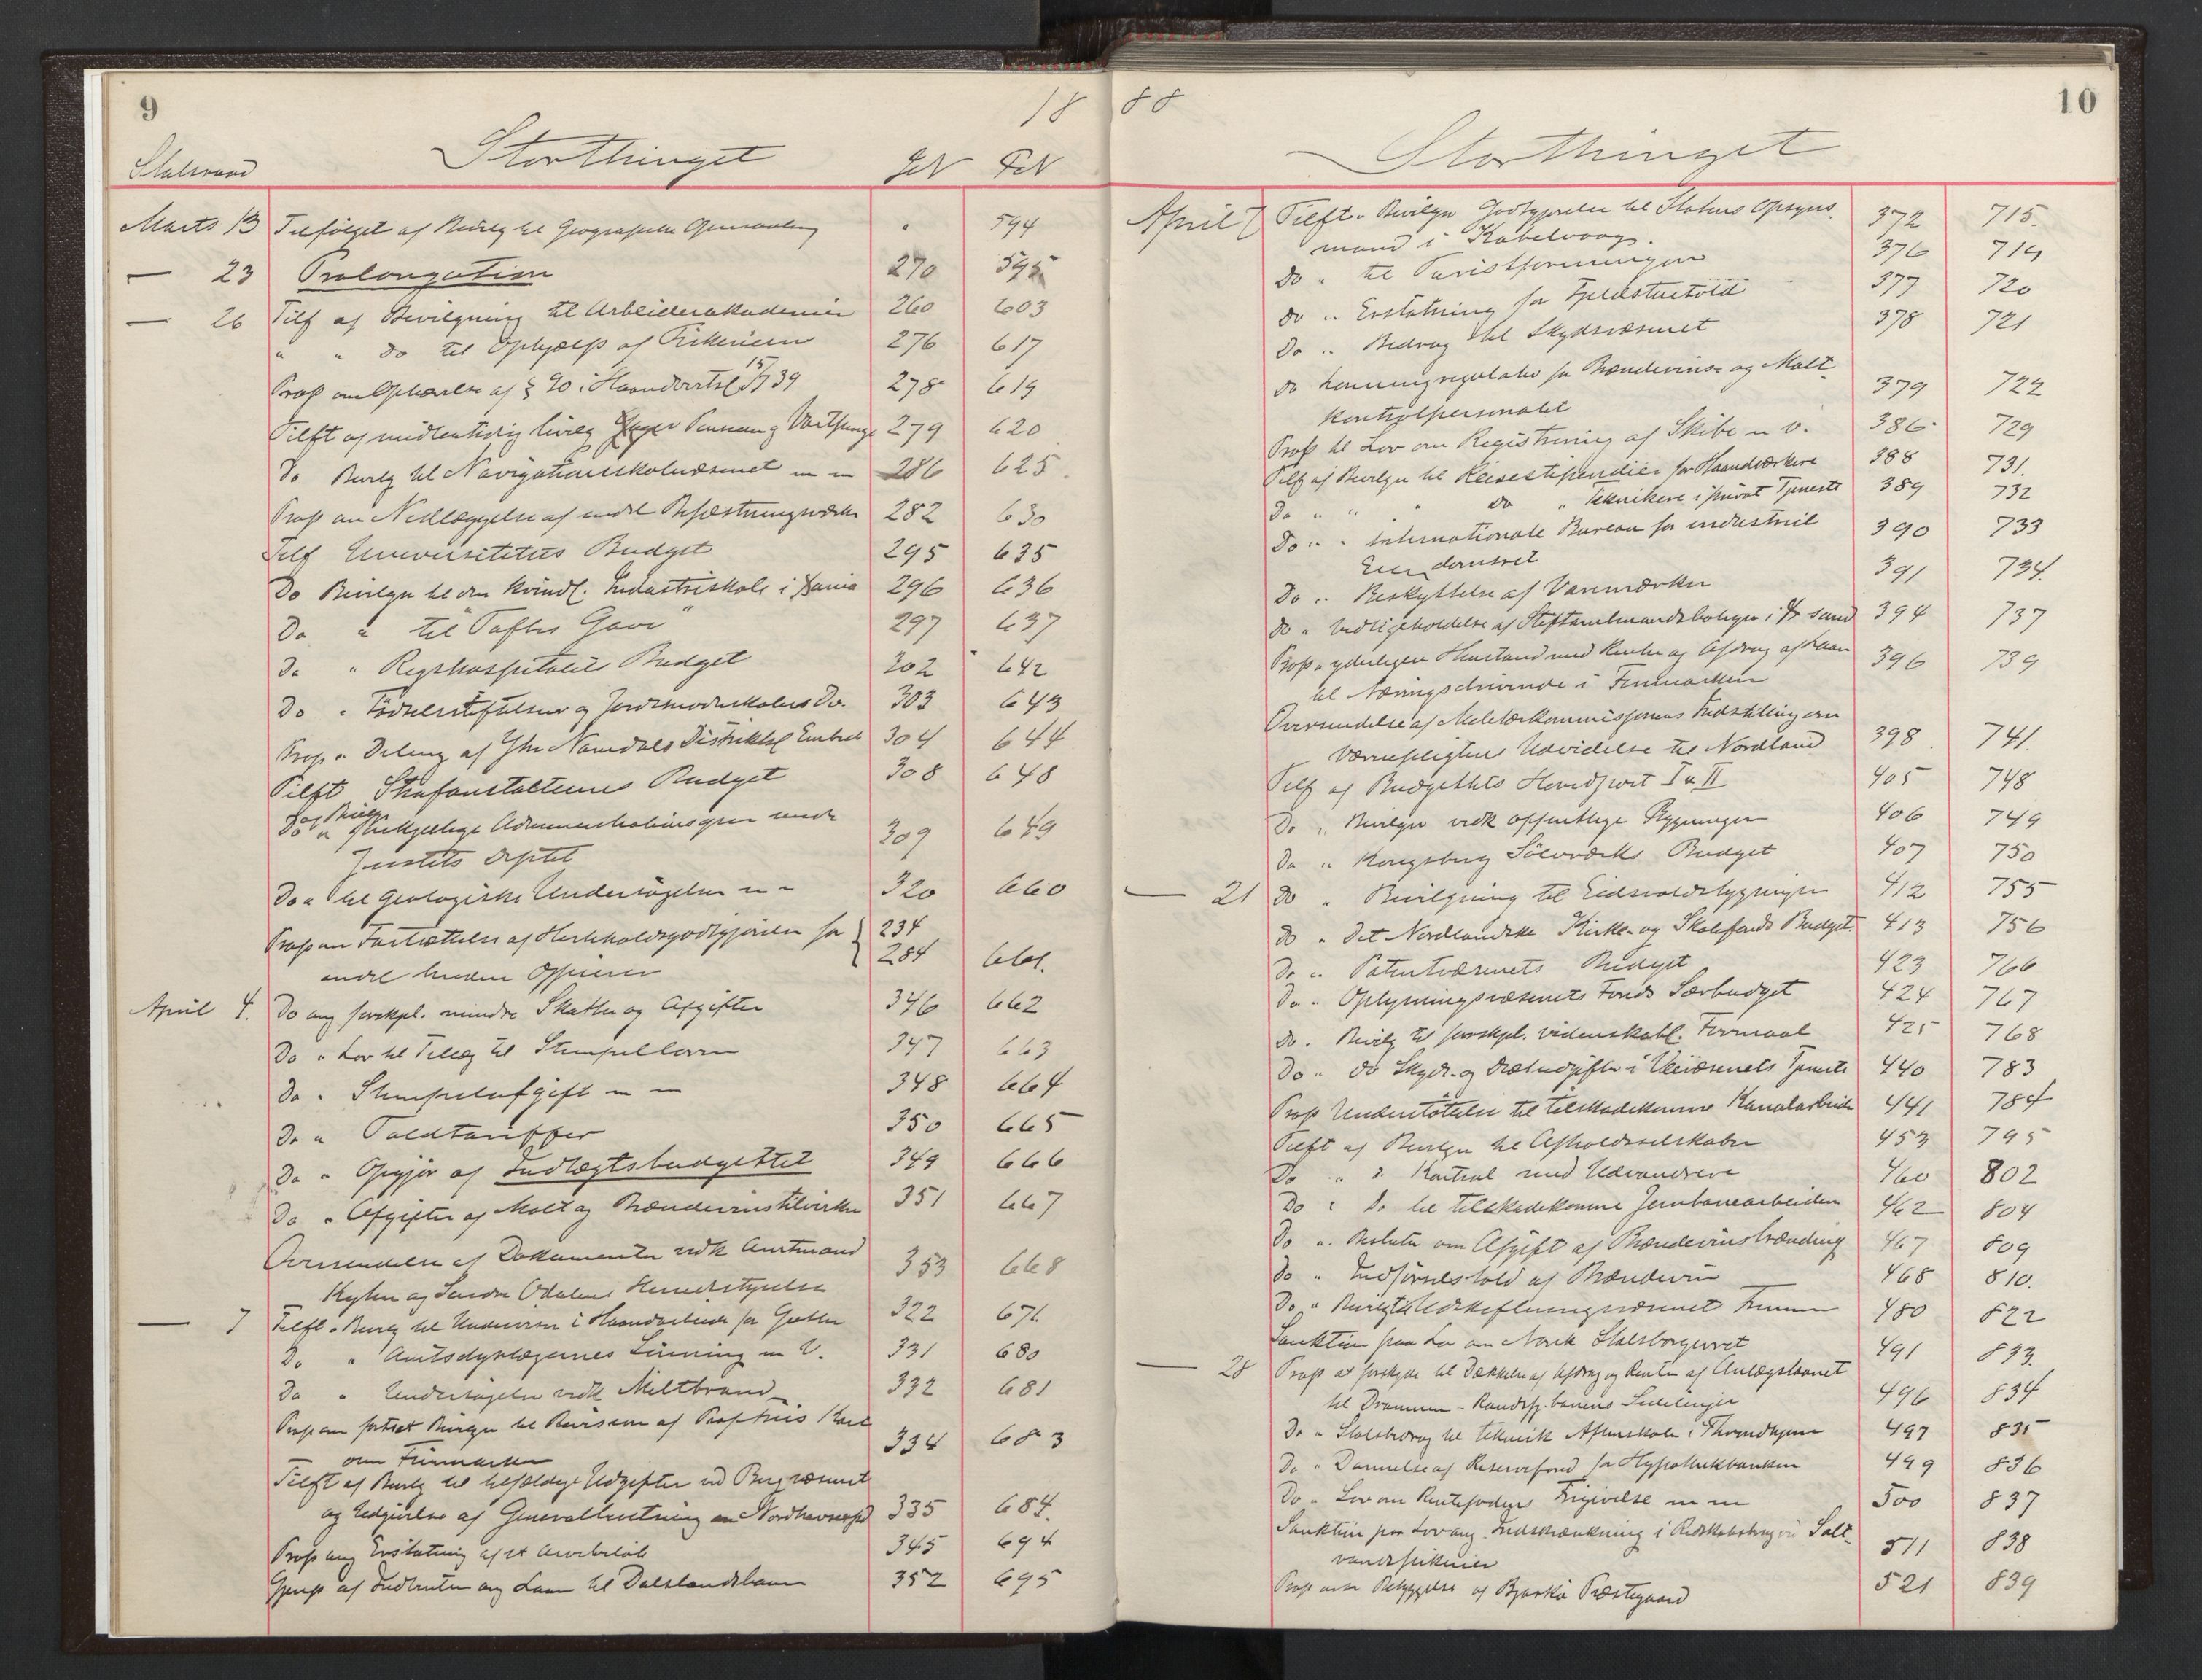 9
18
Statsraad
Storthinget
JN
FN
Marts 13 Tilfølget af Bevilg til Geografisk Opmaaling " 594
— 23 Prolongation 270 595
— 26 Tilf af Bevilgning til Arbeiderakademier 260 603
" " do til Ophjælp af Fiskerierne 276 617
Prop om Ophævelse af § 90 i Haandværksl 15/7 39 278 619
Tilft af midlertidig bevilg Pension 279 620
Do Bevilg til Navigationsskolevæsenet m m 286 625
Prop om Nedlæggelse af endel Befæstningsværker 282 630
Tilf Universitetets Budget 295 635
Do Bevilgn til den kvindl. Industriskole i Xania 296 636
Do " til Toftes Gave 297 637
Do " Rigshospitalets Budget 302 642
Do " Fødselsstiftelsen og Jordmoderskolens Do. 303 643
Prop " Deling af Ytre Namdals Distriktsl Embede 304 644
Tilft Strafanstalternes Budget 308 648
Do " forskjellige Administrationsgrene under 309 649
Justits Deptet
Do " til Geologiske Undersøgelser m m 320 660
Prop om Fortsættelse af Hesteholdsgodtgjørelse for 234
endel Officierer 284 661.
April 4. Do ang forskjel. mindre Skatter og Afgifter 346 662
Do " Lov til Tillæg til Stempelloven 347 663
Do " Stempelafgift m m 348 664
Do " Toldtariffer 350 665
Do " Opgjør af Indtægtsbudgettet 349 666
Do " Afgifter af Malt og Brændevinstilvirkn 351 667
Oversendelse af Dokumenter vedk Amtmand 353 668
og Søndre Odalens Herredsstyrelse
— 7 Tilft " Bevilg til Undervisn i Haandarbeide for Gutter 322 671.
Do " Amtsdyrlægernes Lønning m V. 331 680
Do " Undersøgelser vedk Miltbrand 332 681
Prop om fortsat Bevilgn til Revision af Kart 334 683
over Finmarken
Tilft af Bevilg til tilfældige Udgifter ved Bergvæsenet
og Udgivelse af Generalberetning om Nordhavsexped 335 684.
Prop ang Erstatning af et Arvebeløb 345 694
Gjenp af Indberetn ang Laan til Dalslandsbanen 352 695
88
10
Storthinget
April 7 Tilft " Bevilgn Godtgjørelse til Statens Opsyns- 372 715.
mand i Kabelvaag.
Do " til Turistforeningen 376 719
Do " Erstatning for Fjeldstuetold 377 720
Do " Bidrag til Skydsvæsenet 378 721
Do Lønningsregulativ for Brændevins- og Malt- 379 722
kontrolpersonalet
Prop til Lov om Registrering af Skibe m v. 386 729
Tilf af Bevilgn til Reisestipendier for Haandværkere 388 731.
Do " " " do " Teknikere i privat Tjeneste 389 732
Do " " Internationale Bureau for industriel 390 733
Eiendomsret
Do " Beskyttelse af Varemærker 391 734.
Do " Vedligeholdelse af Stiftamtmandsboligen i Xsand 394 737
Prop " yderligere Henstand med Renter og Afdrag af Laan 396 739
til Næringsdrivende i Finmarken
Oversendelse af Militærkommissionens Indstilling om
Værnepligtens Udvidelse til Nordland 398 741.
Tilf af Budgettets Hovedpost I & II 405 748
Do " Bevilgn vedk offentlige Bygninger 406 749
Do " Kongsberg Sølvværks Budget 407 750
— 21 Do " Bevilgning til Eidsvoldsbygningen 412 755
Do " Det Nordlandske Kirke- og Skolefonds Budget 413 756
Do " Patentvæsenets Budget 423 766
Do " Oplysningsvæsenets Fonds Særbudget 424 767
Do " Bevilg til forskjel. videnskabl. Formaal 425 768
Do " do Skyds- og Diætudgifter i Veivæsenets Tjeneste 440 783
Prop Understøttelse til tilskadekomne Kanalarbeider 441 784
Tilft af Bevilgn til Afholdsselskaber 453 795
Do " " Kontrol med Udvandrere 460 802
Do " Do til tilskadekomne Jernbanearbeidere 462 804
Do " Beslutn om Afgift af Brændevinsbrænding 467 809
Do " Indførselstold af Brændevin 468 810.
Do " Bevilg til Udskiftningsvæsenet Fremme 480 822
Sanktion paa Lov om Norsk Statsborgerret 491 833.
— 28 Prop at forskyde til Dækkelse af Afdrag og Renter af Anlægslaanet
til Drammen-Randsfj.banens Sidelinjer 496 834
Do " Statsbidrag til teknisk Aftenskole i Throndhjem 497 835
Do " Dannelse af Reservefond for Hypothekbanken 499 836
Do " Lov om Rentefodens Frigivelse m m 500 837
Sanktion paa Lov ang Indskrænkning i Redskabsbrug ved Salt- 511 838
vandsfiskerier
Prop om Bebyggelse af Bjarkø Præstegaard 521 839